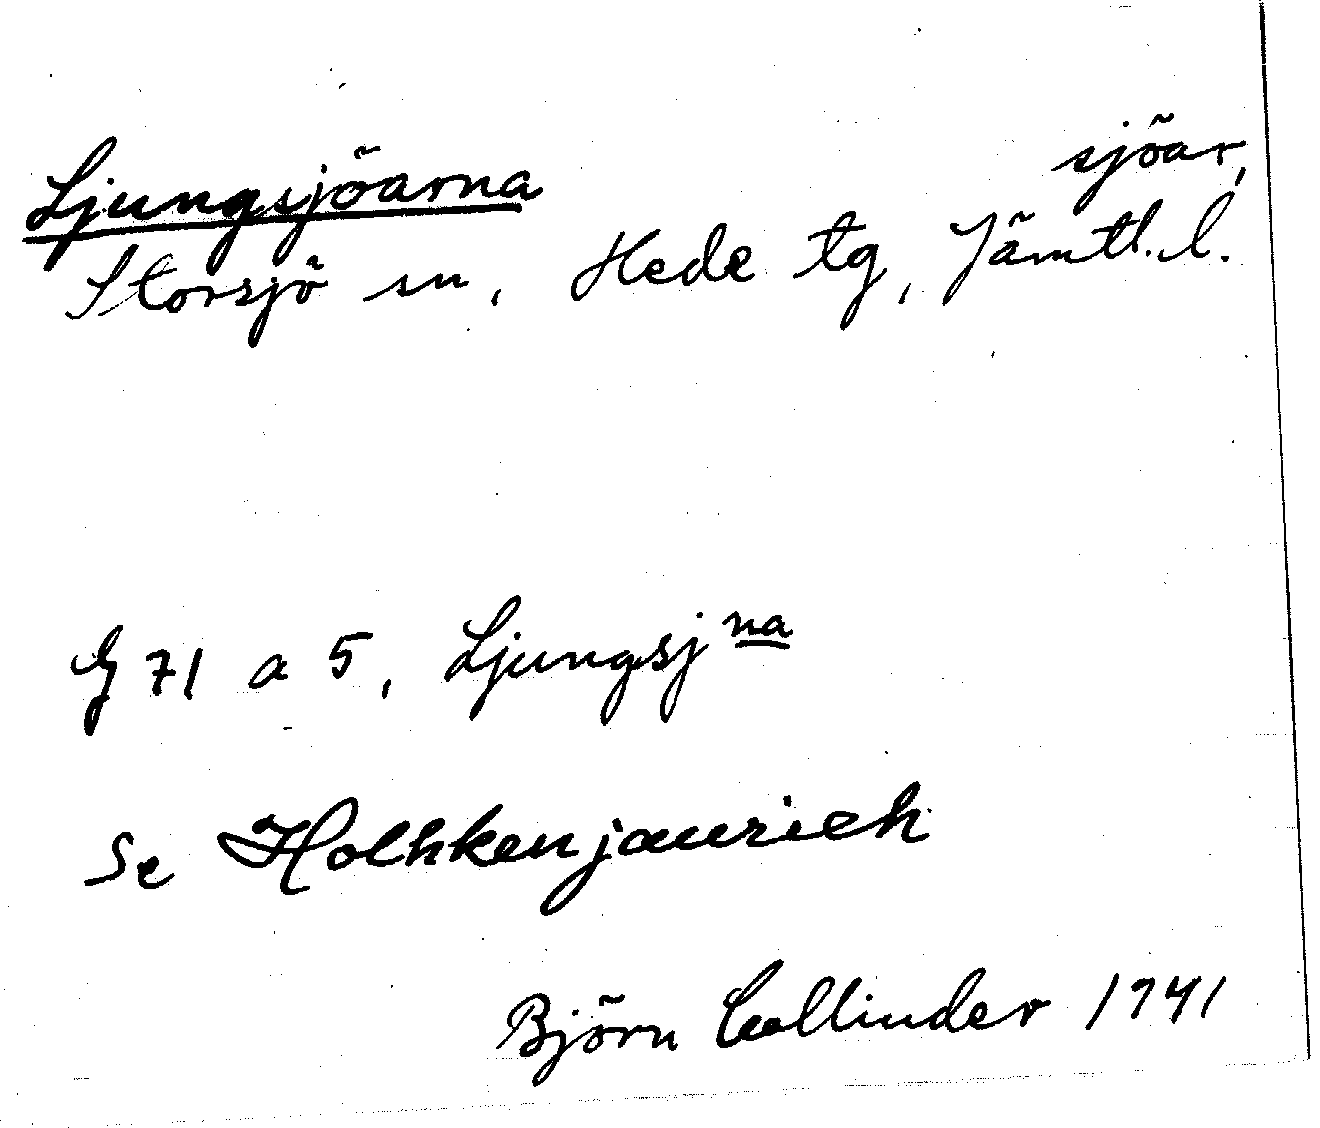 Ljungsjöarna sjöar,
Storsjö sn, Hede tg, Jämtl. l.
G 71 a 5, Ljungsjna
Se Holhkenjaurieh
Björn Collinder 1941